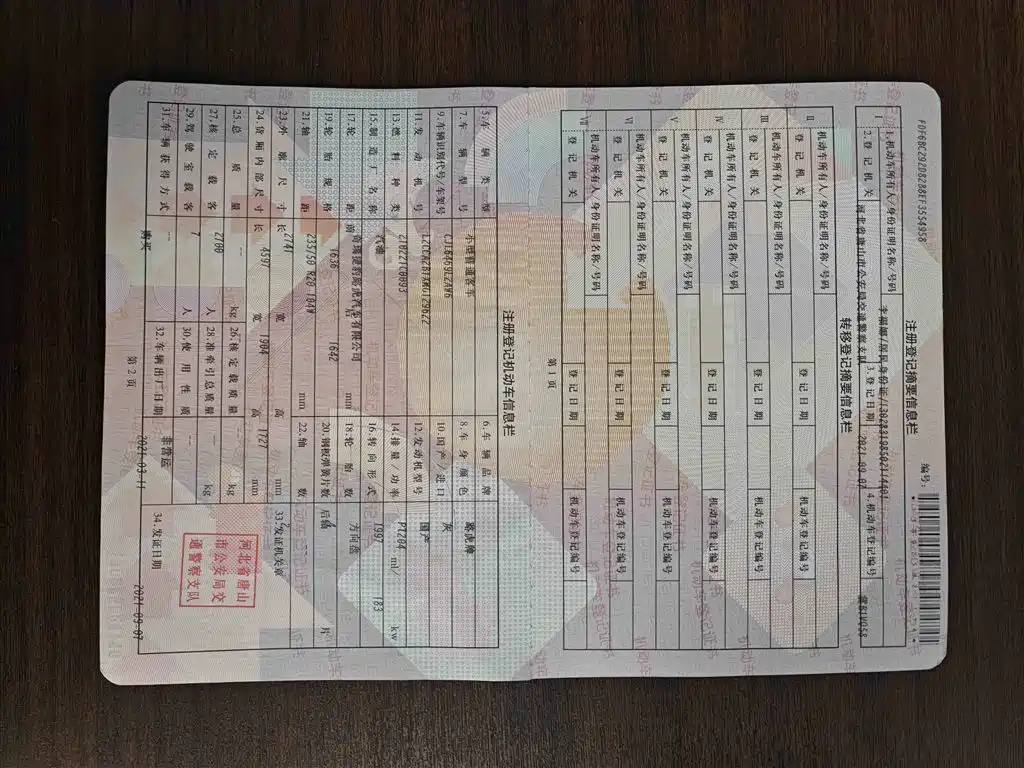 FDF6BC29ZD82B8EF3554958
注册登记摘要信息栏
编号:
Ⅰ 1.机动车所有人/身份证明名称/号码
2.登记机关 河北省唐山市公安局交通警察支队 3.登记日期 2021-09-07 4.机动车登记编号
转移登记摘要信息栏
Ⅱ 机动车所有人/身份证明名称/号码
登记机关 登记日期 机动车登记编号
Ⅲ 机动车所有人/身份证明名称/号码
登记机关 登记日期 机动车登记编号
Ⅳ 机动车所有人/身份证明名称/号码
登记机关 登记日期 机动车登记编号
Ⅴ 机动车所有人/身份证明名称/号码
登记机关 登记日期 机动车登记编号
Ⅵ 机动车所有人/身份证明名称/号码
登记机关 登记日期 机动车登记编号
Ⅶ 机动车所有人/身份证明名称/号码
登记机关 登记日期 机动车登记编号
第 1 页
注册登记机动车信息栏
5.车辆类型 小型普通客车 6.车辆品牌 路虎牌
7.车辆型号 8.车身颜色 灰
9.车辆识别代号/车架号 10.国产/进口 国产
11.发动机号 12.发动机型号 PT204
13.燃料种类 汽油 14.排量/功率 1997 ml/ 183 kw
15.制造厂名称 奇瑞捷豹路虎汽车有限公司 16.转向形式 方向盘
17.轮距 前 1636 后 1642 mm 18.轮胎数
19.轮胎规格 235/50 R20 104W 20.钢板弹簧片数 后轴 -- 片
21.轴距 2741 mm 22.轴数
23.外廓尺寸 长 4597 宽 1904 高 1727 mm 33.发证机关章
24.货厢内部尺寸 长 宽 高 mm
25.总质量 -- kg 26.核定载质量 -- kg
27.核定载客 7 人 28.准牵引总质量 -- kg
29.驾驶室载客 -- 人 30.使用性质 非营运
31.车辆获得方式 购买 32.车辆出厂日期 2021-03-11 34.发证日期 2021-09-07
河北省唐山
市公安局交
通警察支队
第 2 页